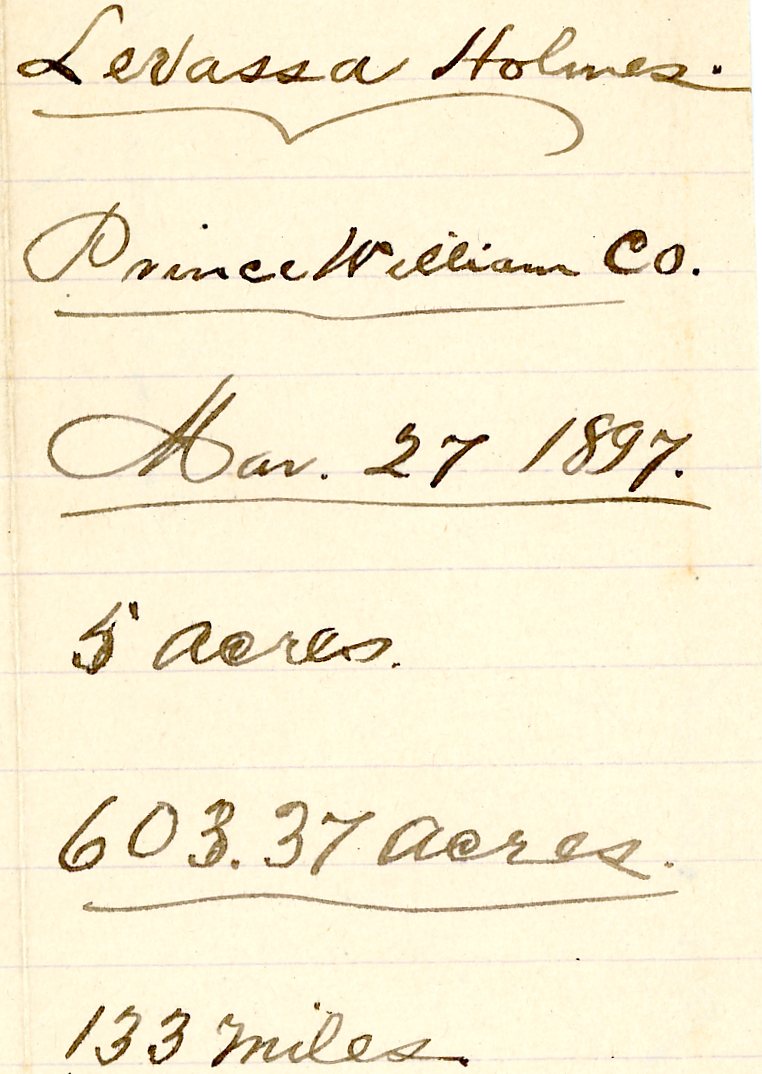 Levassa Holmes.
Prince William Co.
Mar. 27 1897.
5 acres.
603.37 acres.
133 miles.